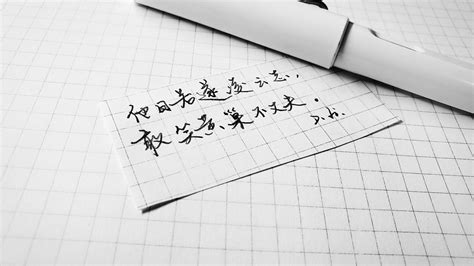 他日若遂凌云志，
敢笑黄巢不丈夫.